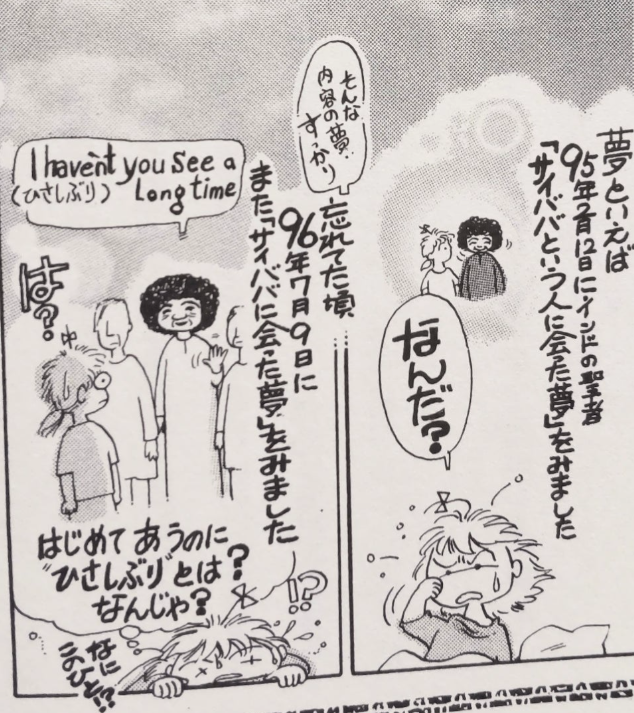 夢といえば
95年2月12日にインドの聖者
「サイババという人に会た夢」をみました
なんだ?
そんな
内容の夢…
すっかり
忘れてた頃
96年7月9日に
また「サイババに会った夢」をみました
I haven't you see a
(ひさしぶり) Long time
は?
はじめて あうのに
"ひさしぶり"とは?
なんじゃ?
!?
なに
このひと!?